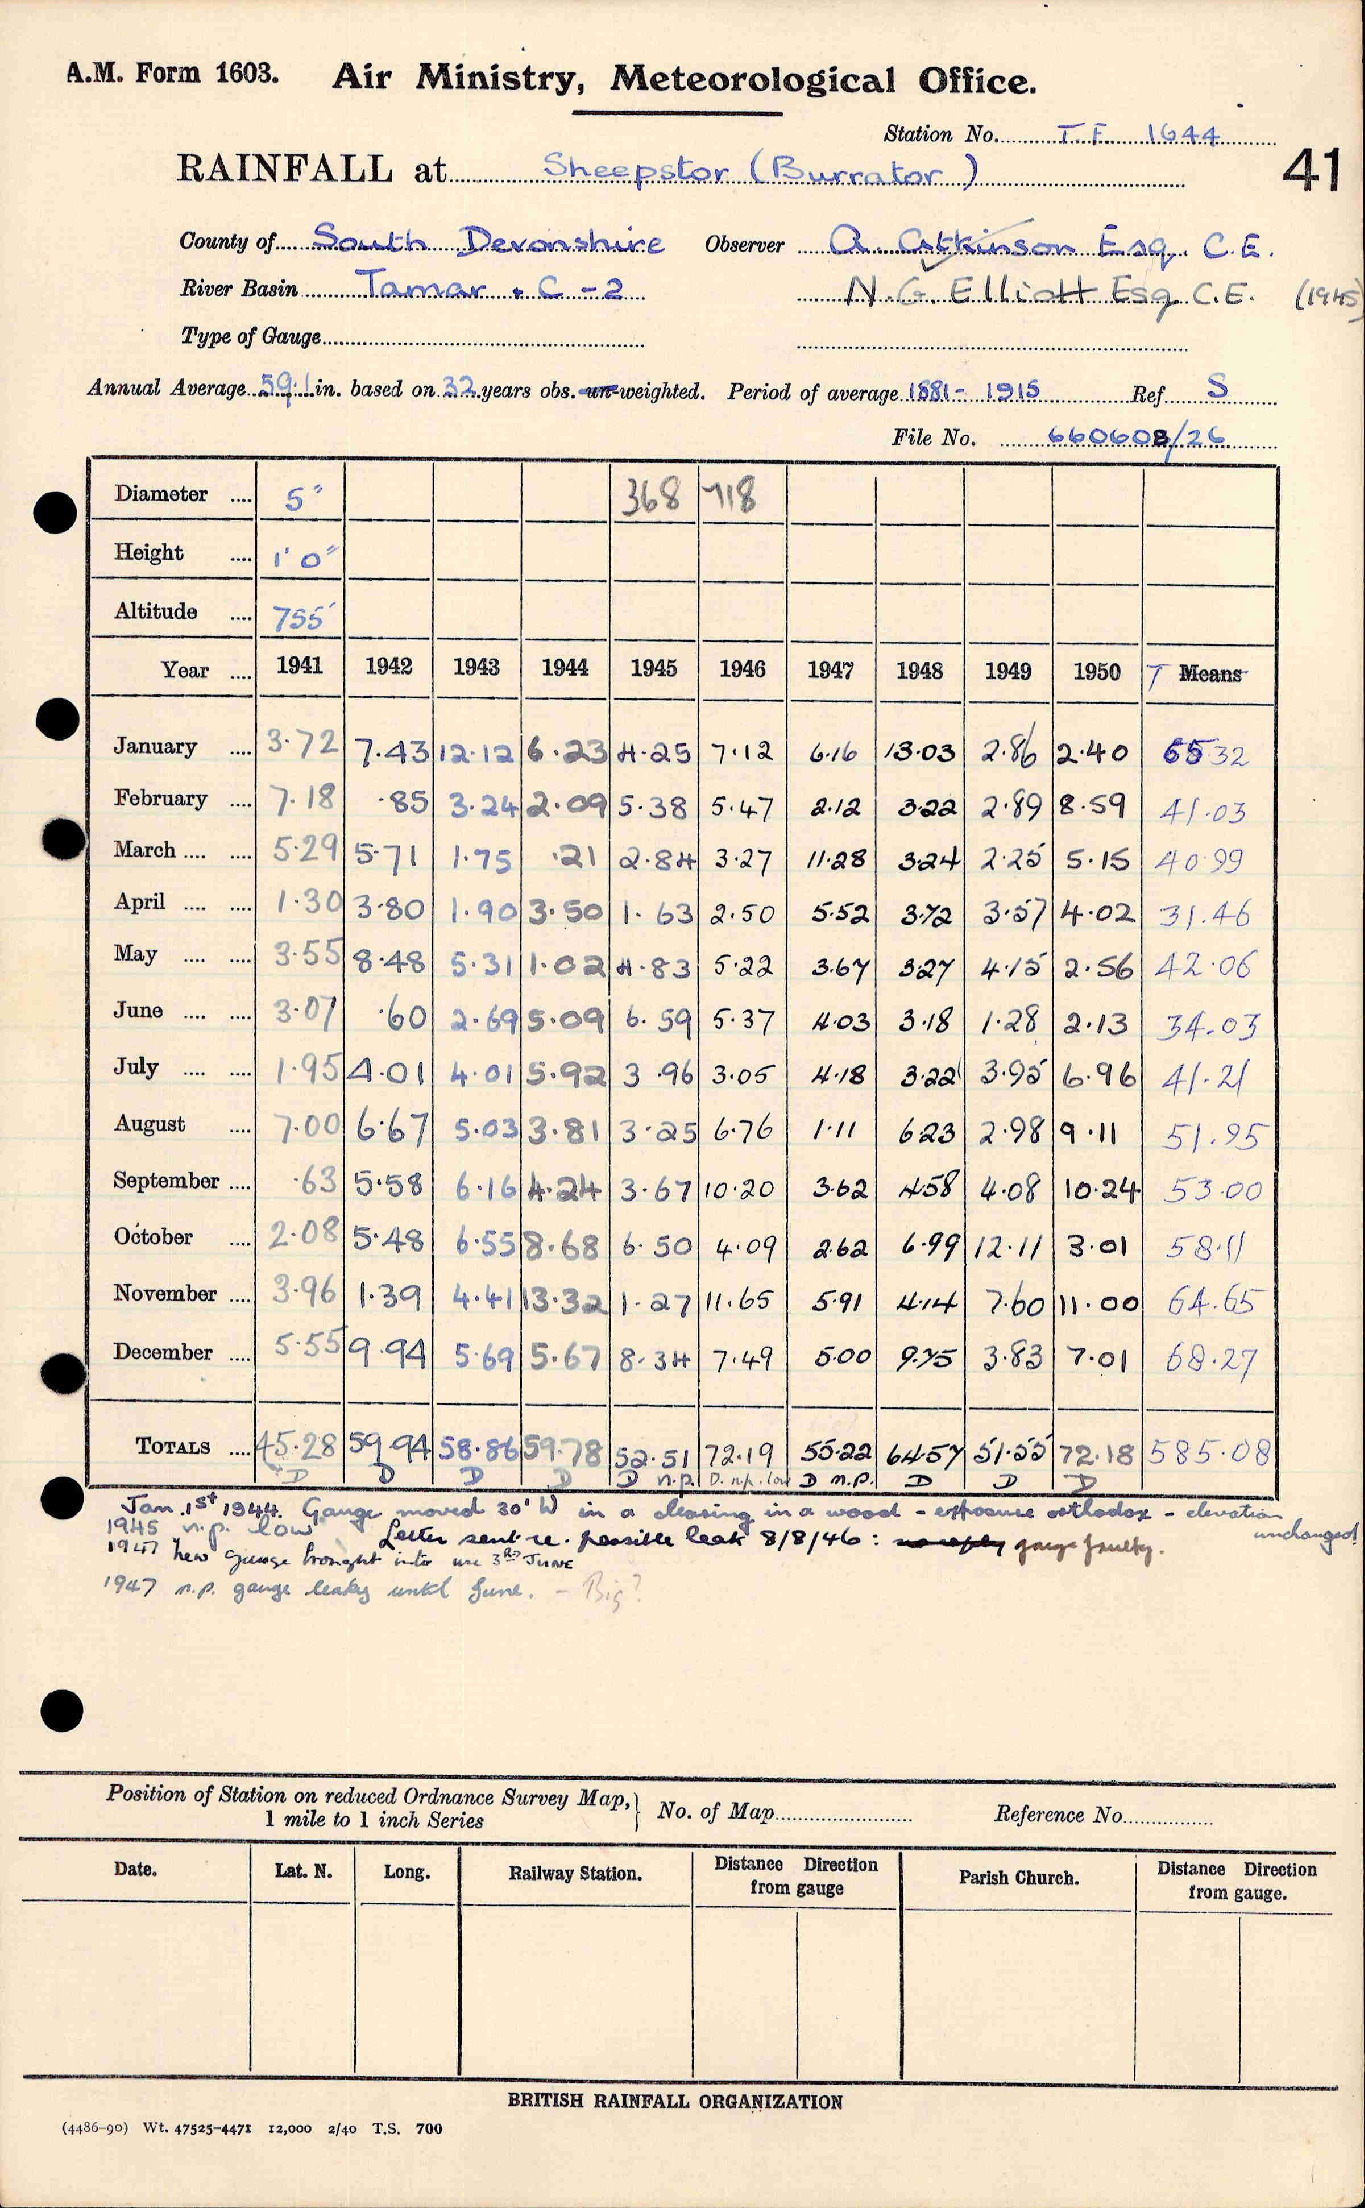 A.M. Form 1603. Air Ministry, Meteorological Office.
Station No. T.F. 1644
41
RAINFALL at Sheepstor (Burrator)
County of South Devonshire Observer A. Atkinson Esq. C.E.
River Basin Tamar + C - 2 N.G. Elliott Esq C.E. (1945)
Type of Gauge
Annual Average 59.1 in. based on 32 years obs. un-weighted. Period of average 1881 - 1915 Ref S
File No. 660608/26
Diameter .... 5" 368 718
Height .... 1' 0"
Altitude .... 755'
Year .... 1941 1942 1943 1944 1945 1946 1947 1948 1949 1950 T Means
January .... 3.72 7.43 12.12 6.23 4.25 7.12 6.16 13.03 2.86 2.40 65 32
February .... 7.18 .85 3.24 2.09 5.38 5.47 2.12 3.22 2.89 8.59 41.03
March .... .... 5.29 5.71 1.75 .21 2.84 3.27 11.28 3.24 2.25 5.15 40.99
April .... .... 1.30 3.80 1.90 3.50 1.63 2.50 5.52 3.72 3.57 4.02 31.46
May .... .... 3.55 8.48 5.31 1.02 4.83 5.22 3.67 3.27 4.15 2.56 42.06
June .... .... 3.07 .60 2.69 5.09 6.59 5.37 4.03 3.18 1.28 2.13 34.03
July .... .... 1.95 4.01 4.01 5.92 3.96 3.05 4.18 3.22 3.95 6.96 41.21
August .... 7.00 6.67 5.03 3.81 3.25 6.76 1.11 6.23 2.98 9.11 51.95
September .... .63 5.58 6.16 4.24 3.67 10.20 3.62 4.58 4.08 10.24 53.00
October .... 2.08 5.48 6.55 8.68 6.50 4.09 2.62 6.99 12.11 3.01 58.11
November .... 3.96 1.39 4.41 13.32 1.27 11.65 5.91 4.14 7.60 11.00 64.65
December .... 5.55 9.94 5.69 5.67 8.34 7.49 5.00 9.75 3.83 7.01 68.27
TOTALS .... 45.28 59.94 58.86 59.78 52.51 72.19 55.22 64.57 51.55 72.18 585.08
D D D D D n.p. D. n.p. low D n.p. D D D
Jan. 1st 1944. Gauge moved 30' W in a clearing in a wood - exposure orthodox - elevation unchanged
1945 n.p. low Letter sent re. possible leak 8/8/46 : no reply gauge faulty.
1947 New gauge brought into use 3RD JUNE
1947 n.p. gauge leaky until June. - Big?
Position of Station on reduced Ordnance Survey Map, 1 mile to 1 inch Series No. of Map Reference No.
Date. Lat. N. Long. Railway Station. Distance Direction from gauge Parish Church. Distance Direction from gauge.
BRITISH RAINFALL ORGANIZATION
(4486-90) Wt. 47525-4471 12,000 2/40 T.S. 700